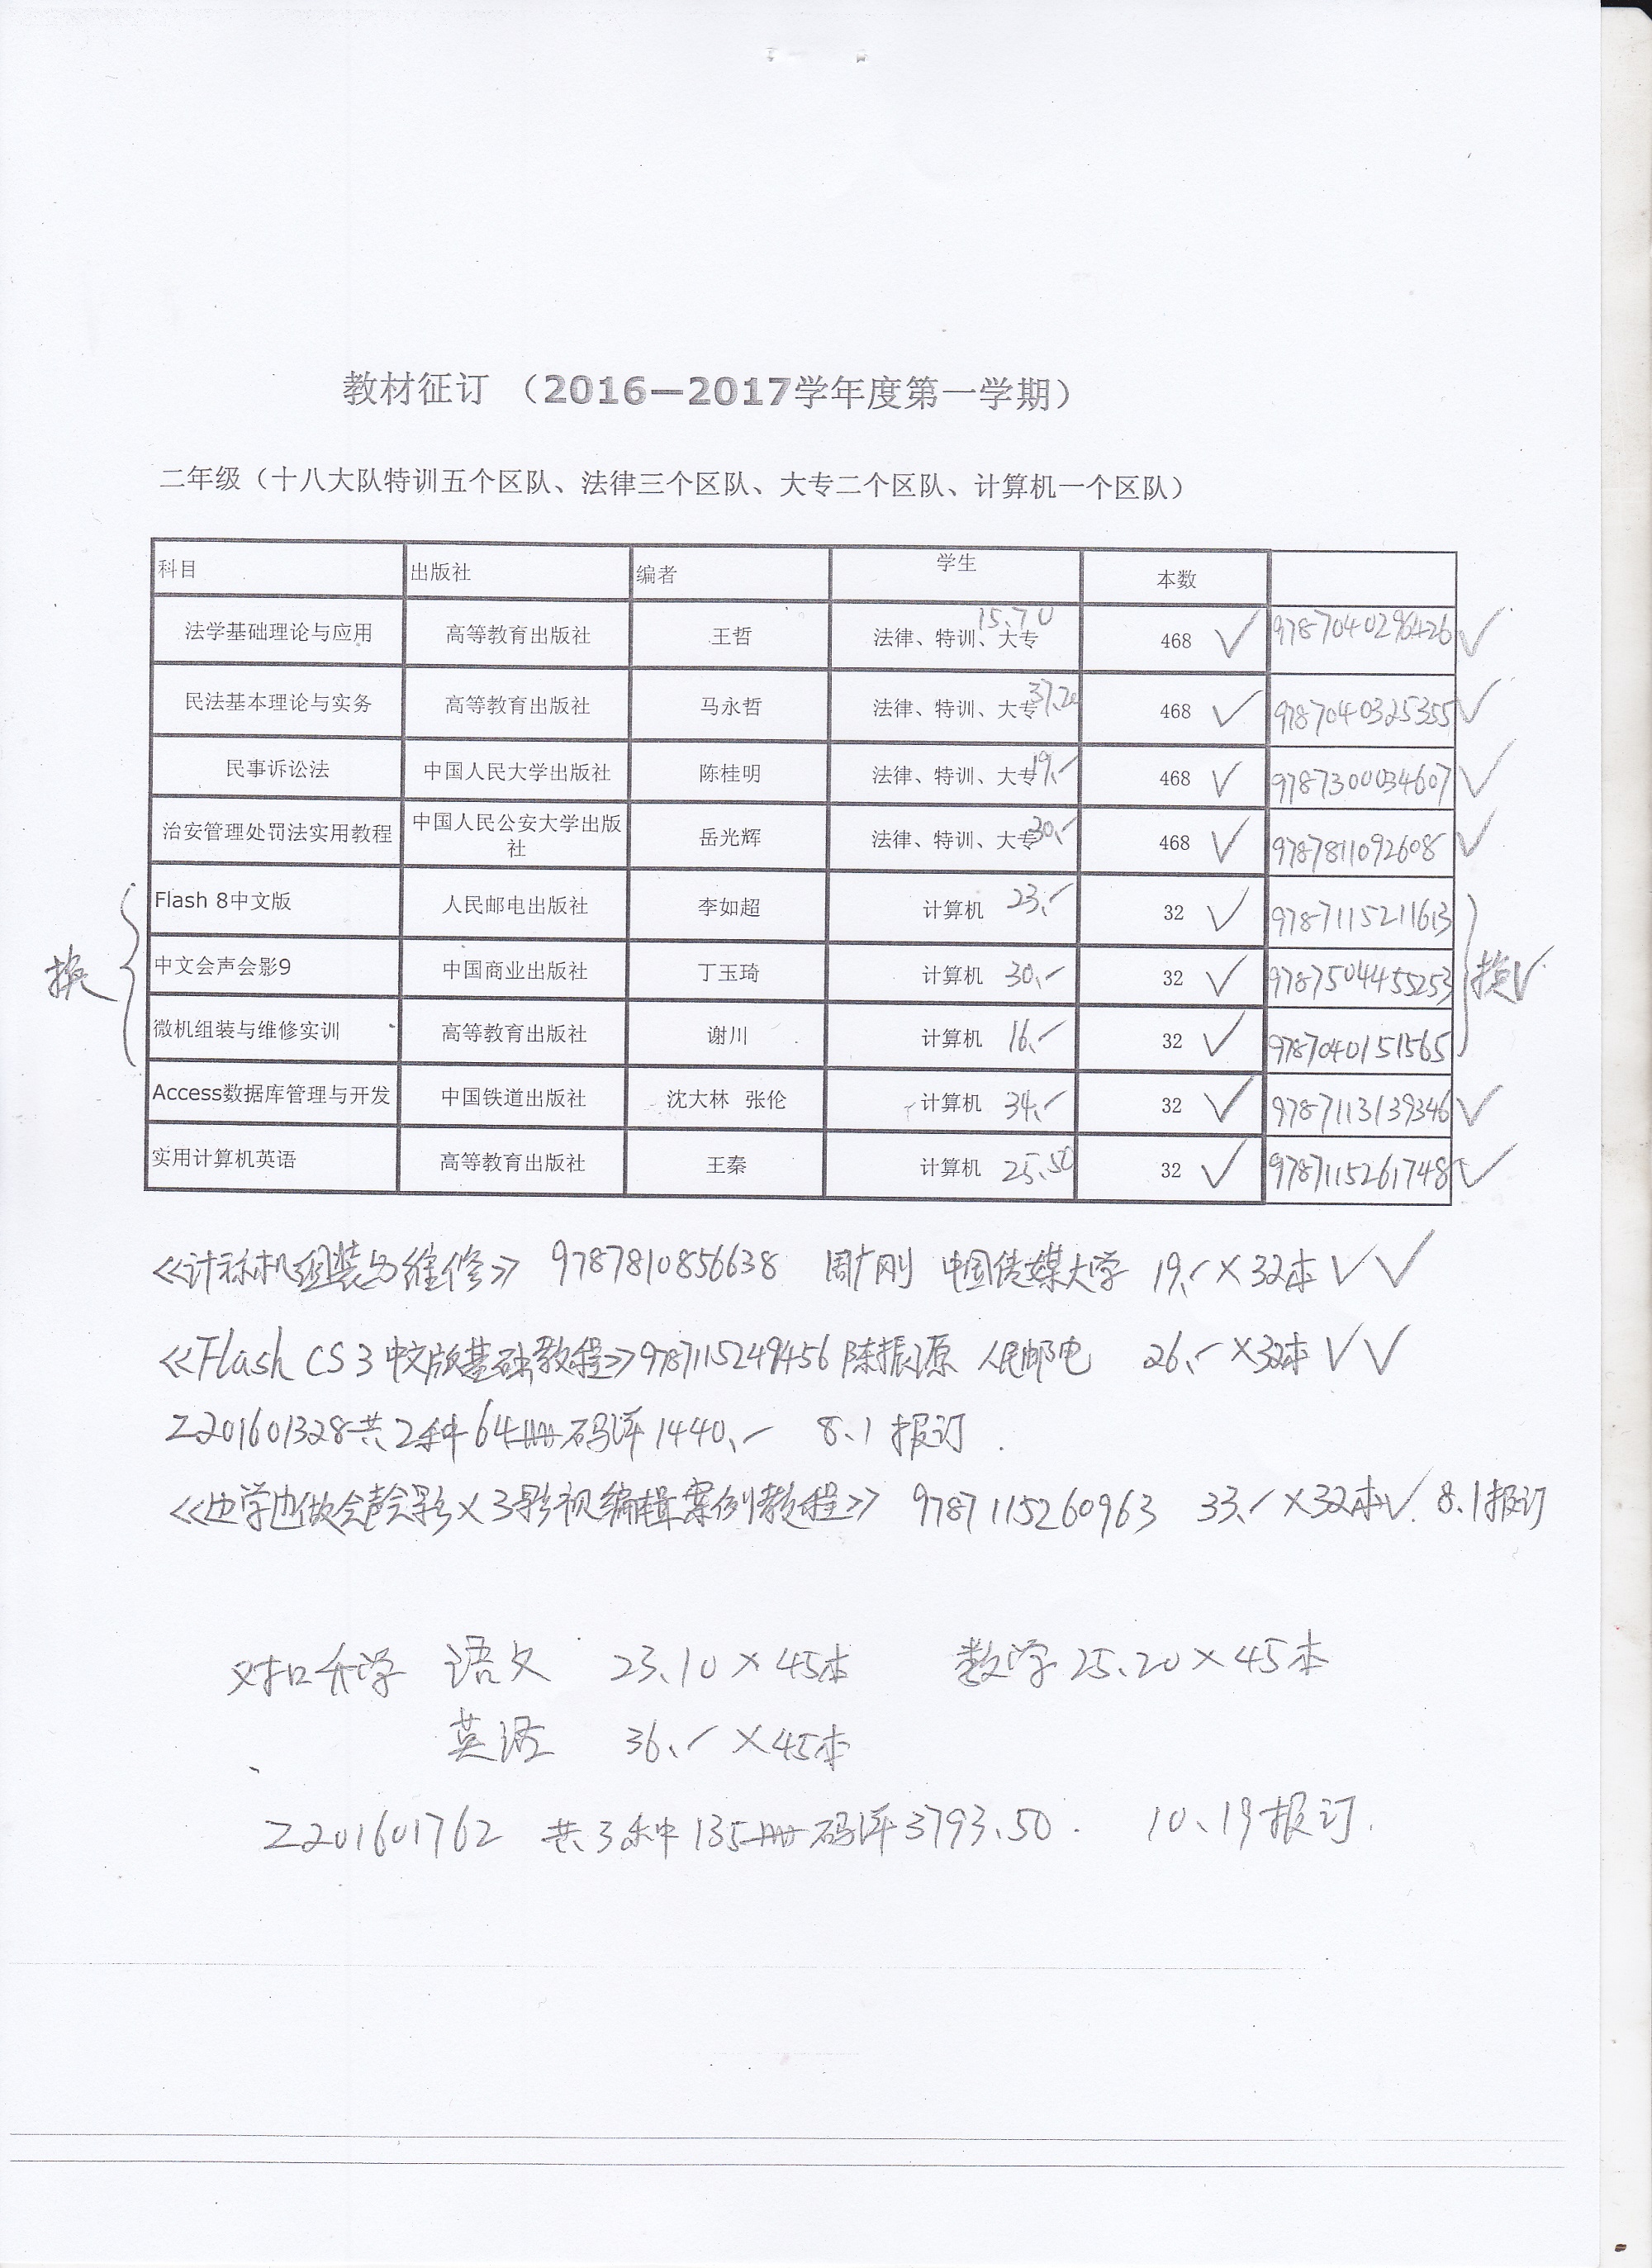 教材征订 （2016—2017学年度第一学期）
二年级（十八大队特训五个区队、法律三个区队、大专二个区队、计算机一个区队）
科目 出版社 编者 学生 本数
法学基础理论与应用 高等教育出版社 王哲 法律、特训、大专 15.70 468 ✓ 9787040296426 ✓
民法基本理论与实务 高等教育出版社 马永哲 法律、特训、大专 37.20 468 ✓ 9787040325355 ✓
民事诉讼法 中国人民大学出版社 陈桂明 法律、特训、大专 19.- 468 ✓ 9787300034607 ✓
治安管理处罚法实用教程 中国人民公安大学出版社 岳光辉 法律、特训、大专 30.- 468 ✓ 9787811092608 ✓
Flash 8中文版 人民邮电出版社 李如超 计算机 23.- 32 ✓ 9787115211613
换 中文会声会影9 中国商业出版社 丁玉琦 计算机 30.- 32 ✓ 9787504455253 换✓
微机组装与维修实训 高等教育出版社 谢川 计算机 16.- 32 ✓ 9787040151565
Access数据库管理与开发 中国铁道出版社 沈大林 张伦 计算机 34.- 32 ✓ 9787113139346 ✓
实用计算机英语 高等教育出版社 王秦 计算机 25.50 32 ✓ 9787115261748 ✓
《计祘机组装与维修》 9787810856638 周广刚 中国传媒大学 19.- ×32本 ✓✓
《Flash CS3中文版基础教程》9787115249456 陈振源 人民邮电 26.- ×32本 ✓✓
Z201601328共2种64册码洋1440.- 8.1报订.
《边学边做会声会影X3影视编辑案例教程》 9787115260963 33.- ×32本✓. 8.1报订
对口升学 语文 23.10×45本 数学 25.20×45本
英语 36.- ×45本
Z201601762 共3种135册码洋3793.50. 10.19报订.